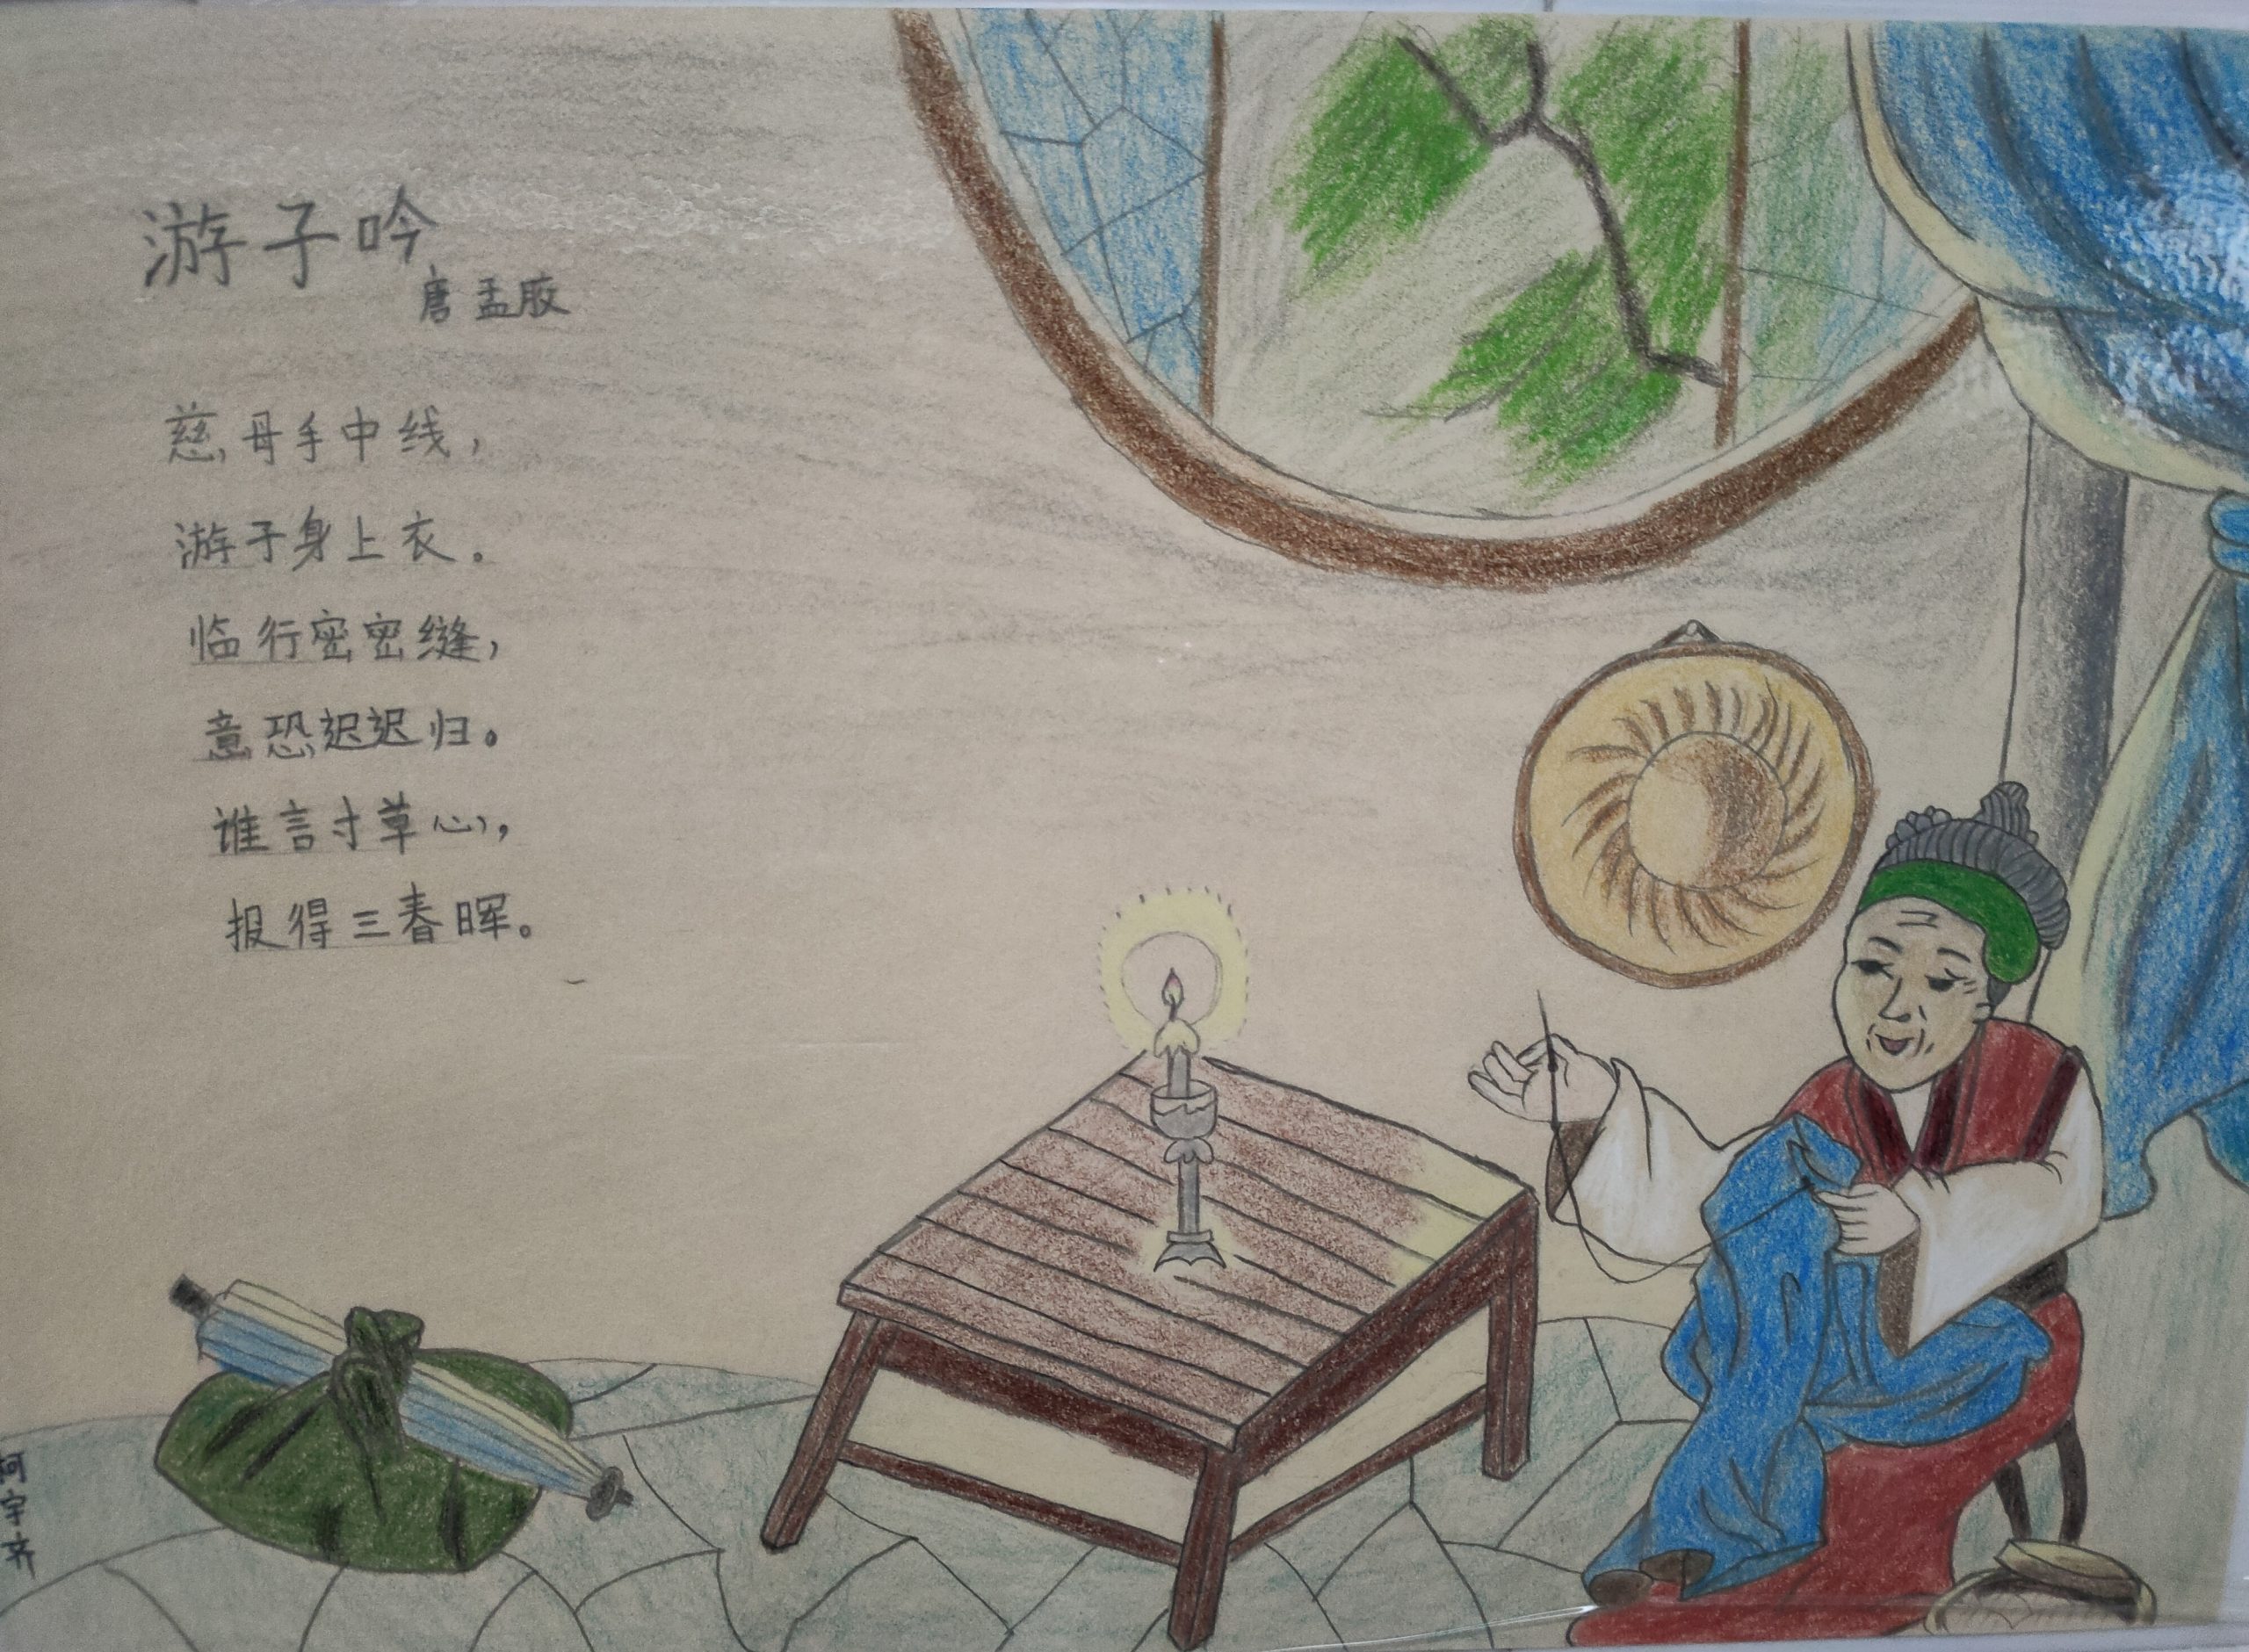 游子吟
唐 孟胶
慈母手中线，
游子身上衣。
临行密密缝，
意恐迟迟归。
谁言寸草心，
报得三春晖。
柯宇齐